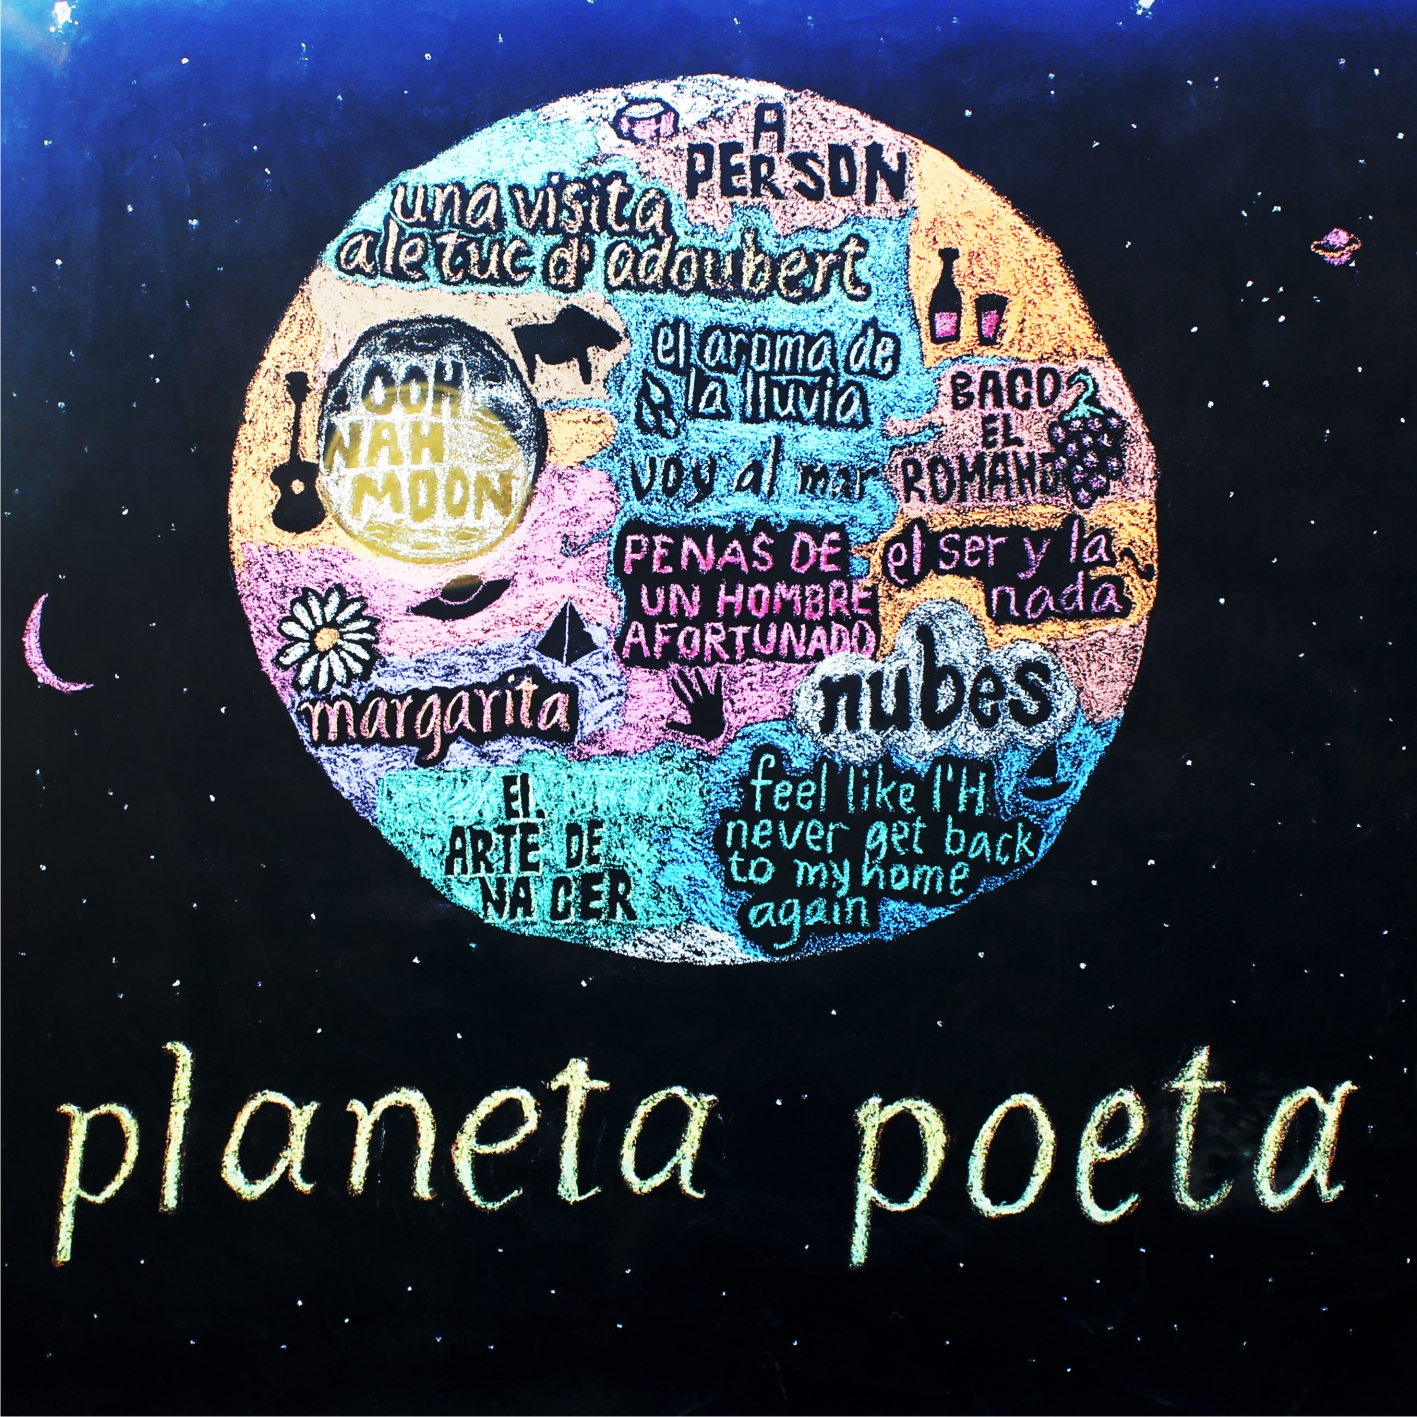 A
PERSON
una visita
a le tuc d'adoubert
el aroma de
la lluvia
OOH
NAH
MOON
BACO
EL
ROMANO
voy al mar
PENAS DE
UN HOMBRE
AFORTUNADO
el ser y la
nada
nubes
margarita
EL
ARTE DE
NACER
feel like I'll
never get back
to my home
again
planeta poeta